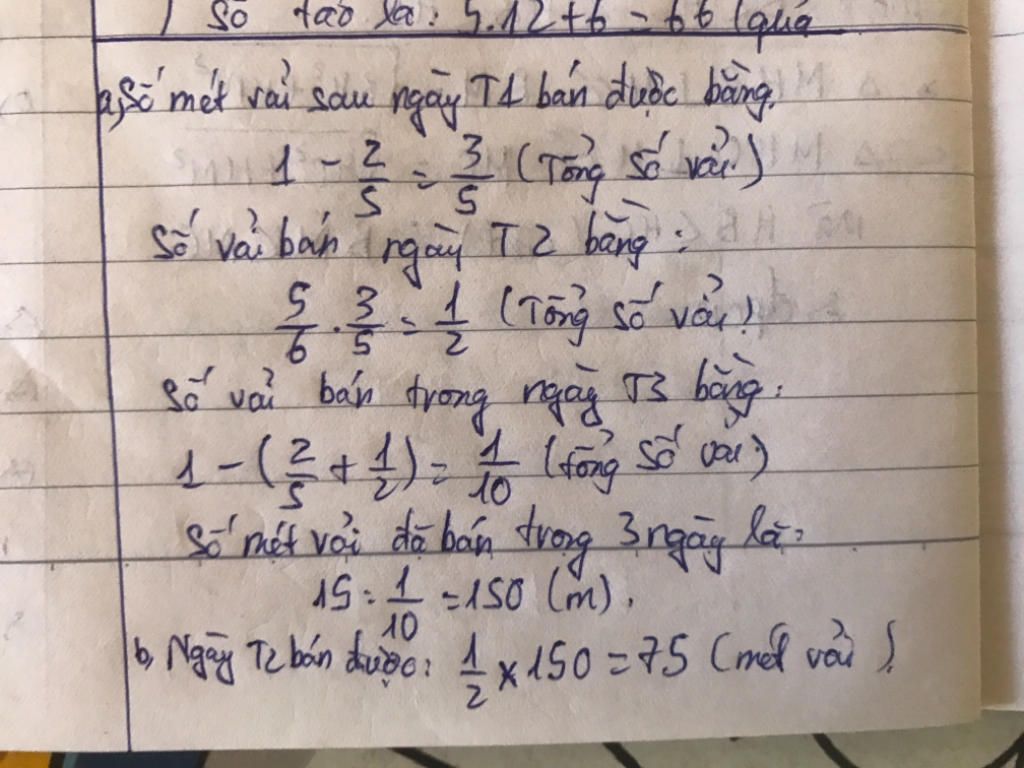 Số táo là: 5.12+6 = 66 (quả
a, Số mét vải sau ngày T1 bán được bằng.
1 - 2/5 = 3/5 (Tổng số vải)
Số vải bán ngày T2 bằng:
5/6 . 3/5 = 1/2 (Tổng số vải)
Số vải bán trong ngày T3 bằng:
1 - (2/5 + 1/2) = 1/10 (tổng số vải)
Số mét vải đã bán trong 3 ngày là:
15 : 1/10 = 150 (m).
b, Ngày T2 bán được: 1/2 x 150 = 75 (mét vải)